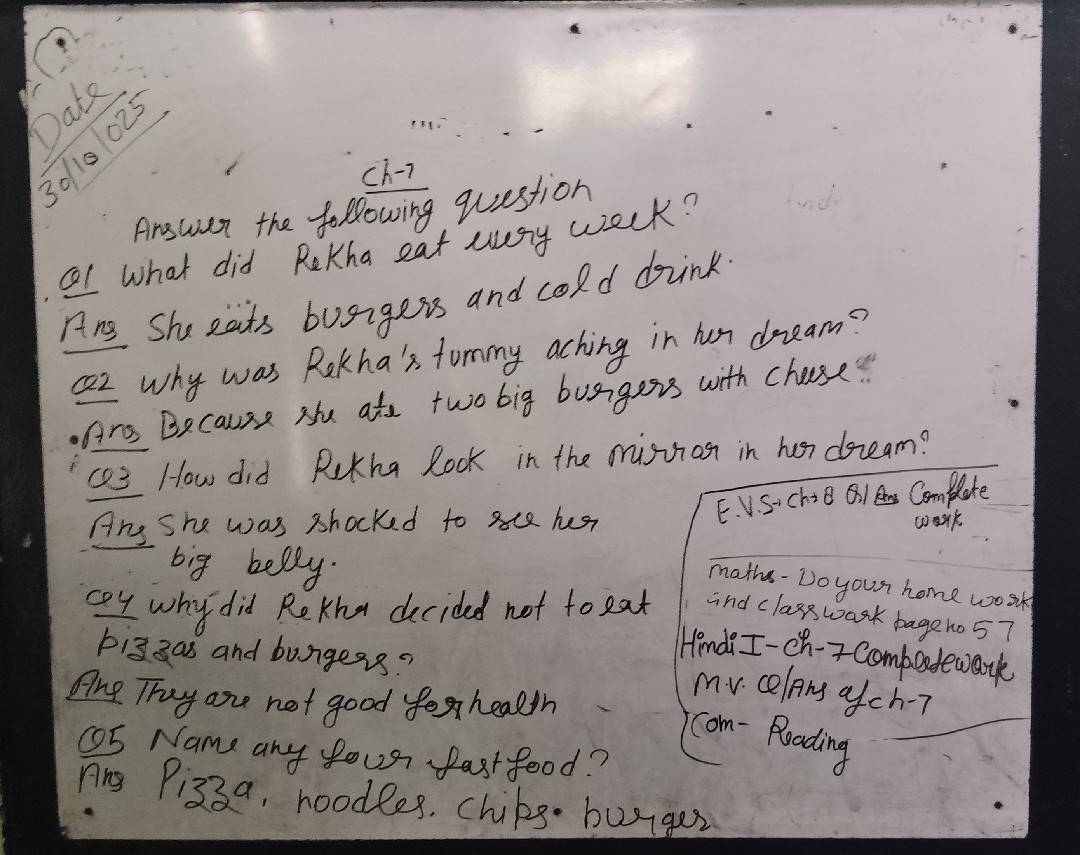 Date
30/10/025
Ch-7
Answer the following question
Q1 What did Rekha eat every week?
Ans She eats burgers and cold drink.
Q2 Why was Rekha's tummy aching in her dream?
Ans Because she ate two big burgers with cheese
Q3 How did Rekha look in the mirror in her dream?
Ans She was shocked to see her
big belly.
Q4 Why did Rekha decided not to eat
pizzas and burgers?
Ans They are not good for health
Q5 Name any four fast food?
Ans Pizza, noodles. chips. burger
E.V.S→ch→8 Q/Ans Complete
work
maths - Do your home work
and classwork page no 57
Hindi I - Ch-7 Complete work
M.V. Q/Ans of ch-7
Com- Reading